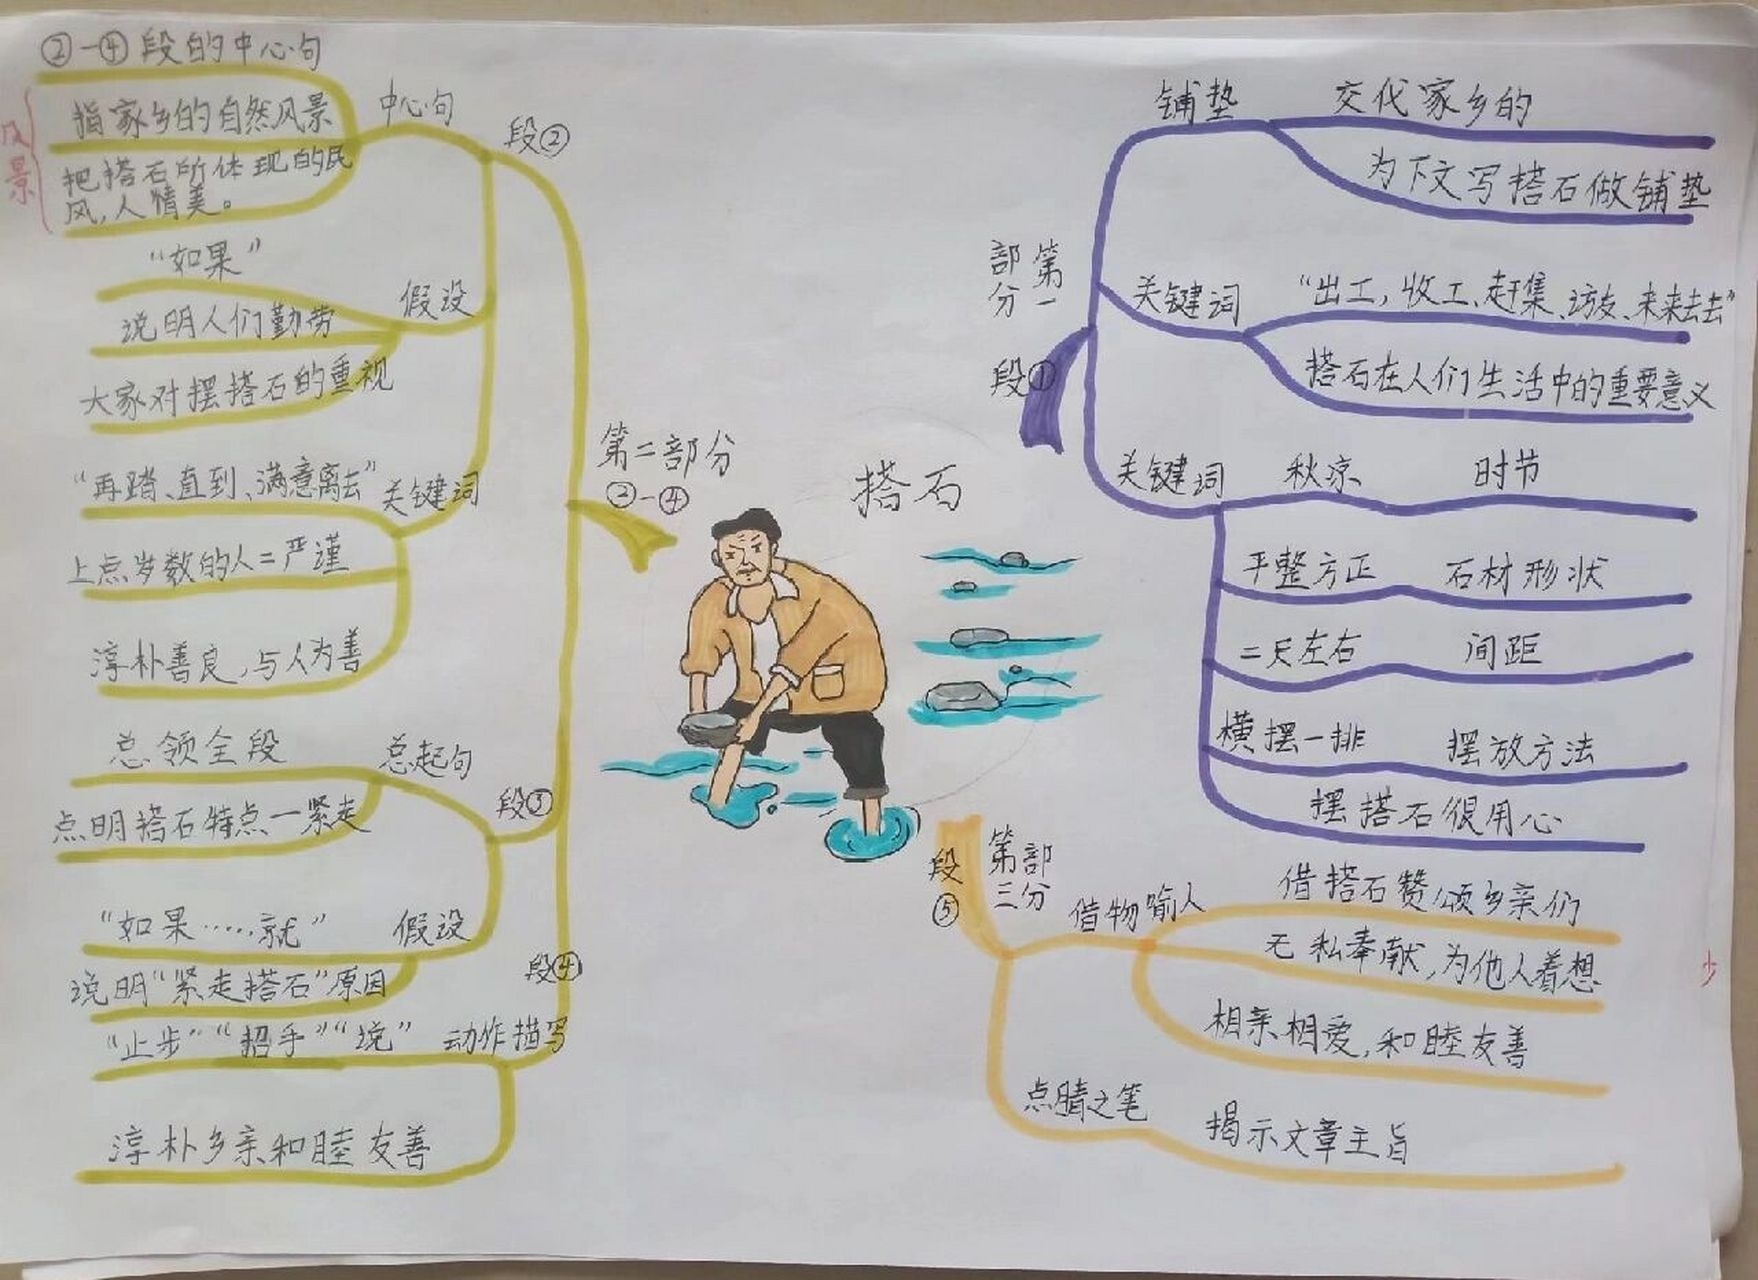 搭石
第一
部分
段①
铺垫
交代家乡的
为下文写搭石做铺垫
关键词
“出工，收工、赶集、访友、来来去去”
搭石在人们生活中的重要意义
关键词
秋凉
时节
平整方正
石材形状
二尺左右
间距
横摆一排
摆放方法
摆搭石很用心
第二部分
②-④
段②
中心句
②-④段的中心句
指家乡的自然风景
把搭石所体现的民
风，人情美。
风景
假设
“如果”
说明人们勤劳
大家对摆搭石的重视
关键词
“再踏、直到、满意离去”
上点岁数的人=严谨
淳朴善良，与人为善
段③
总起句
总领全段
点明搭石特点一紧走
假设
“如果……就”
说明“紧走搭石”原因
段④
动作描写
“止步”“招手”“说”
淳朴乡亲和睦友善
第三
部分
段⑤
借物喻人
借搭石赞颂乡亲们
无私奉献，为他人着想
相亲相爱，和睦友善
点睛之笔
揭示文章主旨
少